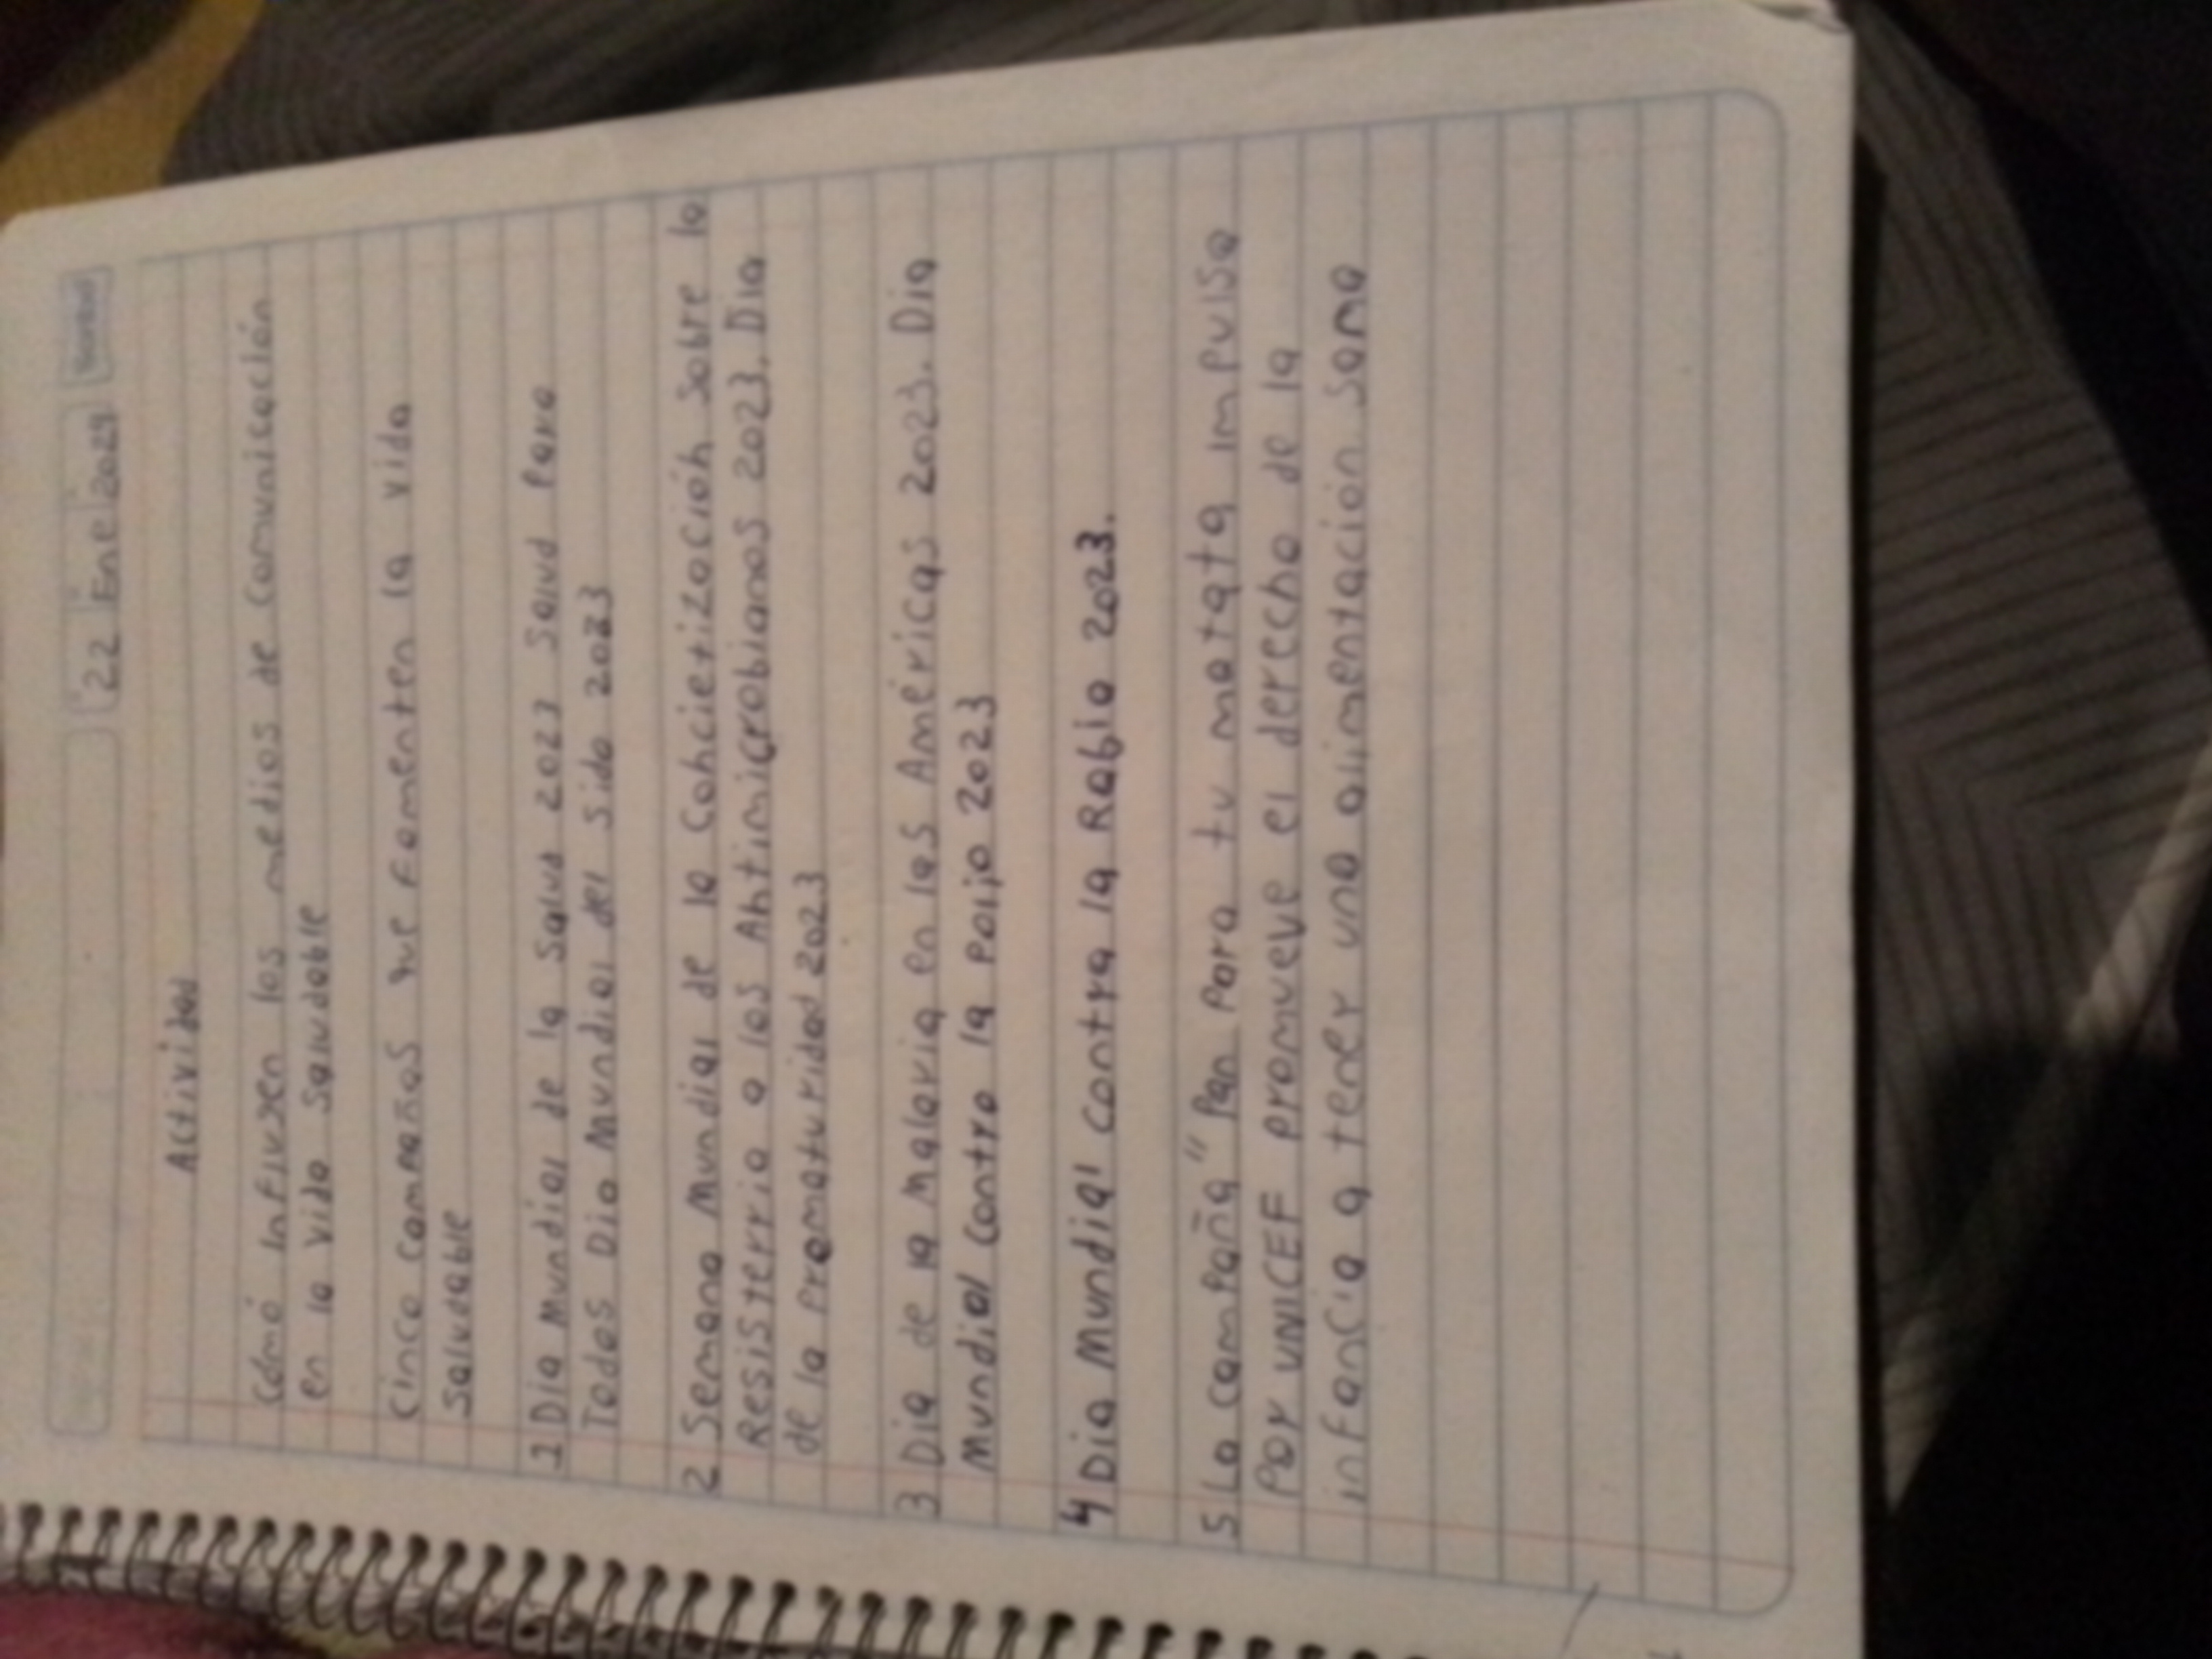 22 Ene 2024
Actividad
Cómo influyen los medios de comunicación
en la vida saludable
Cinco campañas que fomenten la vida
saludable
1 Dia Mundial de la Salud 2023 Salud para
Todos Dia Mundial del sida 2023
2 Semana Mundial de la Cohcietizoción sobre la
Resisterria a los Antimicrobianos 2023. Dia
de la prematuridad 2023
3 Dia de la Malaria en las Américas 2023. Dia
Mundial contra la polijo 2023
4 Dia Mundial contra la Rabia 2023.
5 La campaña " Pan para tu matata impulsa
por UNICEF promueve el derecho de la
infancia a tener una alimentacion sana